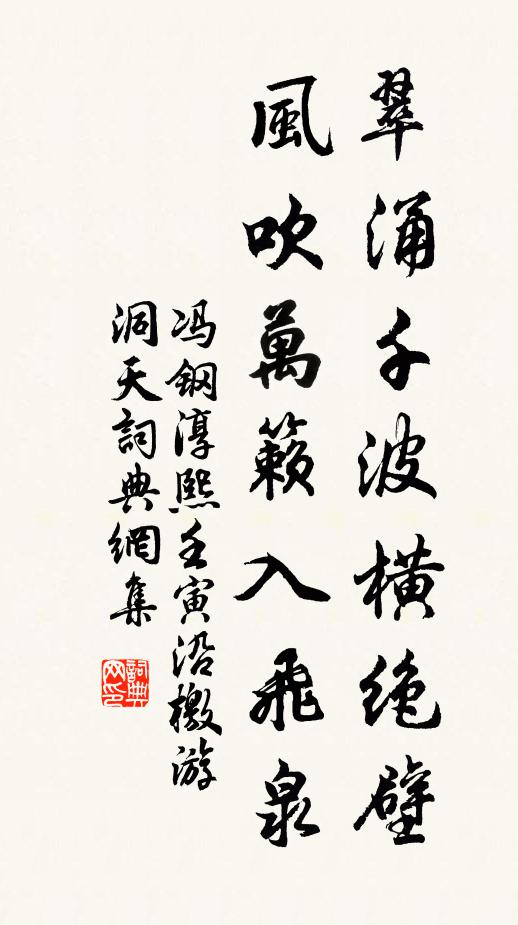 翠涌千波橫绝壁
風吹萬籟入飛泉
冯钢淳熙壬寅沿檄游
洞天詞典網集
詞典網印